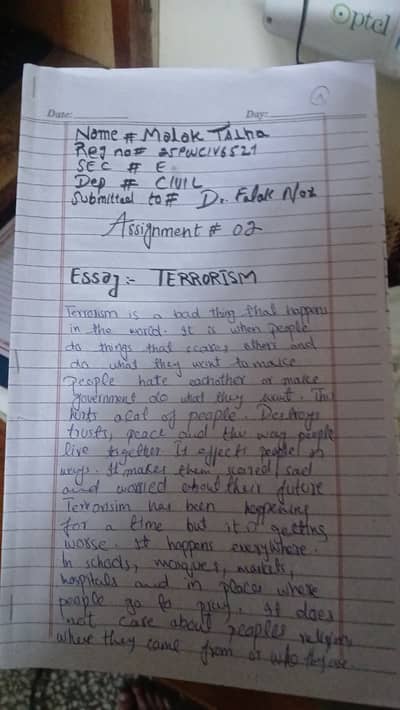 ptcl
Date:
Day:
Name # Malak Talha
Reg no # 25PWCIV6521
SEC # E
Dep # CIVIL
Submitted to # Dr. Falak Naz
Assignment # 02
Essay :- TERRORISM
Terrorism is a bad thing that happens
in the world. It is when people
do things that scares others and
do what they want to make
people hate eachother or make
government do what they want. This
hurts a lot of people. Destroys
trusts, peace and the way people
live together It effects people in
ways. It makes them scared, sad
and worried about their future
Terrorisim has been happening
for a time but it getting
worse. It happens everywhere.
In schools, mosques, markets,
hospitals and in places where
people go to pray. It does
not care about peoples religion,
where they came from or who they are.